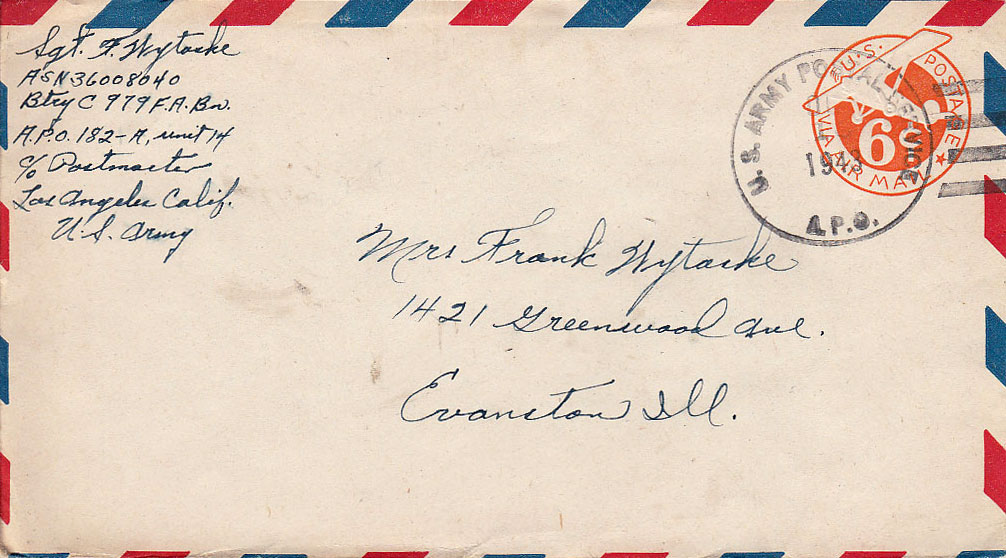 Sgt. F. Wytaske
ASN 36008040
Btry C 979 F.A. Bn.
A.P.O. 182-A, unit 14
c/o Postmaster
Los Angeles Calif.
U.S. Army
U.S. POSTAGE
6¢
VIA AIR MAIL
U.S. ARMY POSTAL SERVICE
1943
A.P.O.
Mrs Frank Wytaske
1421 Greenwood Ave.
Evanston Ill.